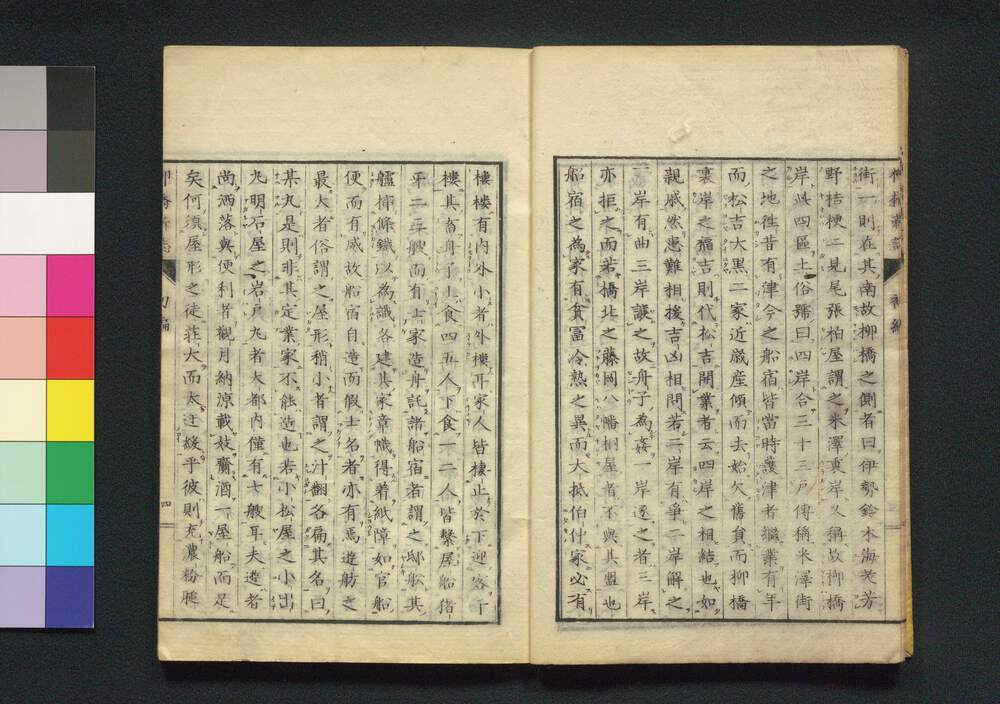 街一則在其南故柳橋之側者曰伊勢鈴木海老芳
野桔梗二見尾張柏屋謂之米澤東岸又稱故柳橋
岸此四區土俗號曰四岸合三十三戶傳稱米澤街
之地往昔有津今之船宿皆當時護津者繼業有年
而松吉大黑二家近歲産傾而去始欠舊負而柳橋
裏岸之福吉則代松吉開業者云四岸之相結也如
親戚然患難相援吉凶相問若二岸有爭二岸解之
一岸有曲三岸讓之故舟子為姦一岸逐之者三岸
亦拒之而若橋北之藤岡八幡桐屋者不與其盟也
船宿之為家有貧富冷熱之異而大抵伯仲家必有
樓樓有內外小者外樓耳家人皆棲止於下迎客于
樓其畜舟子上食四五人下食一二人皆繫屋船俗
平二三艘而有士家造舟託諸船宿者謂之邸船其
艫插條鐵以為識各建其家章幟得着紙障如官船
便而有威故船宿自造而假士名者亦有焉遊舫之
最大者俗謂之屋形稍小者謂之汁翻各扁其名曰
某丸是則非其定業家不能造也若小松屋之小出
丸明石屋之岩戶丸者大都內僅有七艘耳夫遊者
尚洒落爽便利者觀月納涼載妓齎酒一屋船而足
矣何須屋形之徒莊大而太迂緩乎彼則充濃粉膩
初編
四